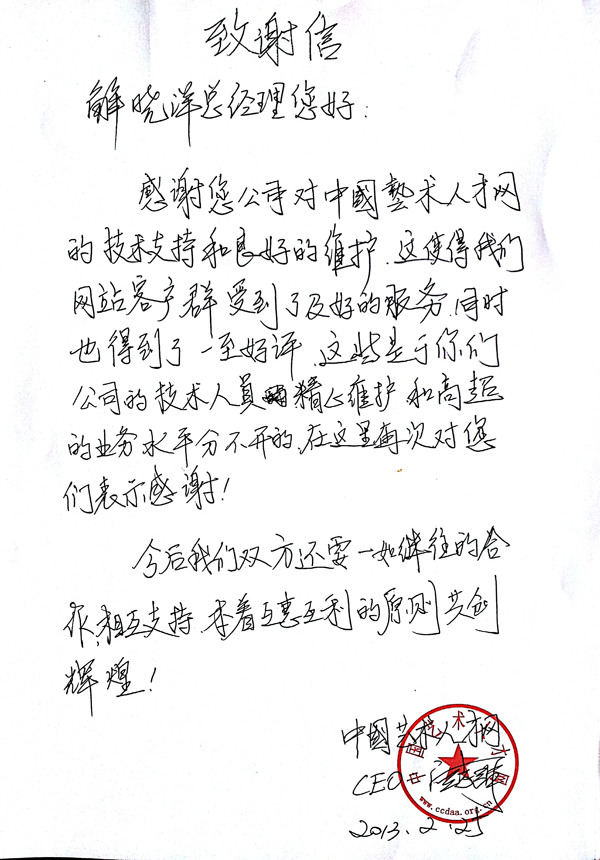 致谢信
解晓洋总经理您好:
感谢您公司对中國藝术人才网
的技术支持和良好的维护.这使得我们
网站客户群受到了及好的服务.同时
也得到了一至好评.这些是于你们
公司的技术人员精心维护和高超
的业务水平分不开的.在这里再次对您
们表示感谢!
今后我们双方还要一如继往的合
作,相互支持.本着互惠互利的原则共创
辉煌!
中國艺术人才网
CEO
www.ccdaa.org.cn
2013.2.25